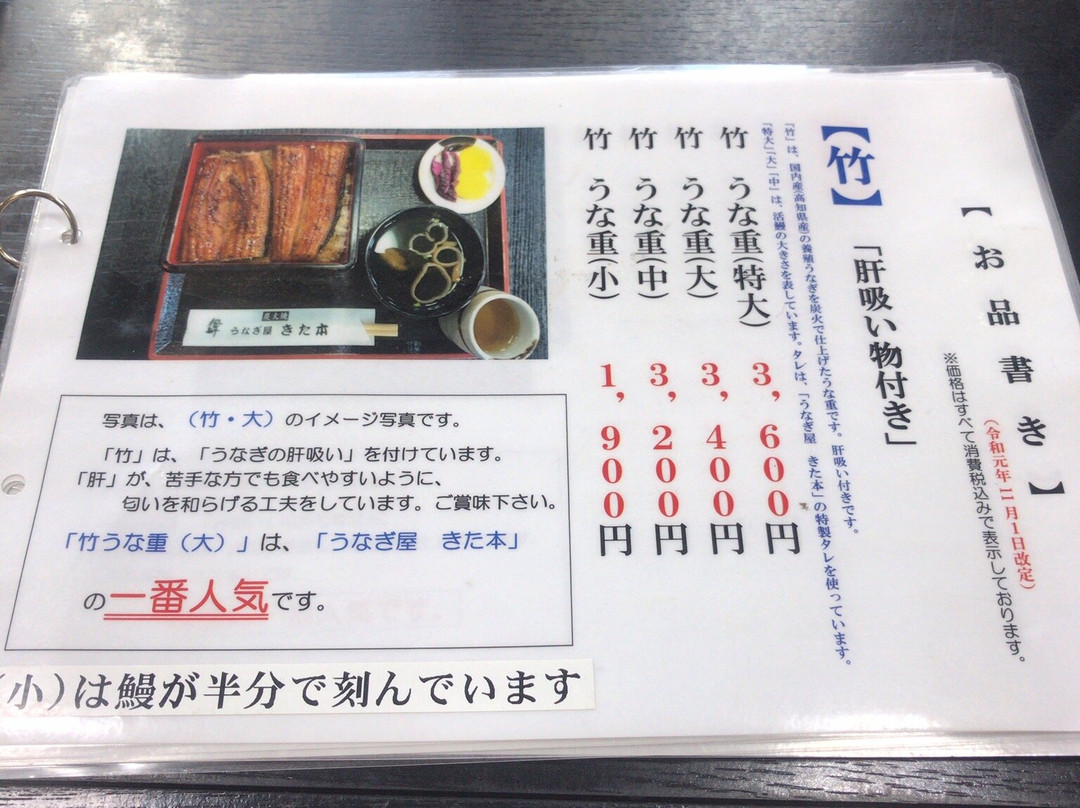 【お品書き】
(令和元年11月1日改定)
※価格はすべて消費税込みで表示しております。
【竹】「肝吸い物付き」
「竹」は、国内産(高知県産)の養殖うなぎを炭火で仕上げたうな重です。肝吸い付きです。
「特大」「大」「中」は、活鰻の大きさを表しています。タレは、「うなぎ屋 きた本」の特製タレを使っています。
竹 うな重(特大) 3,600円
竹 うな重(大) 3,400円
竹 うな重(中) 3,200円
竹 うな重(小) 1,900円
炭火焼
うなぎ屋 きた本
写真は、(竹・大)のイメージ写真です。
「竹」は、「うなぎの肝吸い」を付けています。
「肝」が、苦手な方でも食べやすいように、
匂いを和らげる工夫をしています。ご賞味下さい。
「竹うな重(大)」は、「うなぎ屋 きた本」
の一番人気です。
(小)は鰻が半分で刻んでいます